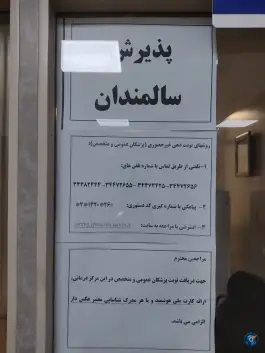 پذیرش
سالمندان
روشهای نوبت دهی غیرحضوری (پزشکان عمومی و متخصص):
۱- تلفنی از طریق تماس با شماره تلفن های:
۳۴۴۷۲۶۵۶-۳۴۴۷۲۲۲۵-۳۴۴۷۲۶۵۵-
۲- پیامکی با شماره گیری کد دستوری:
۳- اینترنتی با مراجعه به سایت:
مراجعین محترم
جهت دریافت نوبت پزشکان عمومی و متخصص در این مرکز درمانی،
ارائه کارت ملی هوشمند و یا هر مدرک شناسایی معتبر عکس دار
الزامی می باشد.